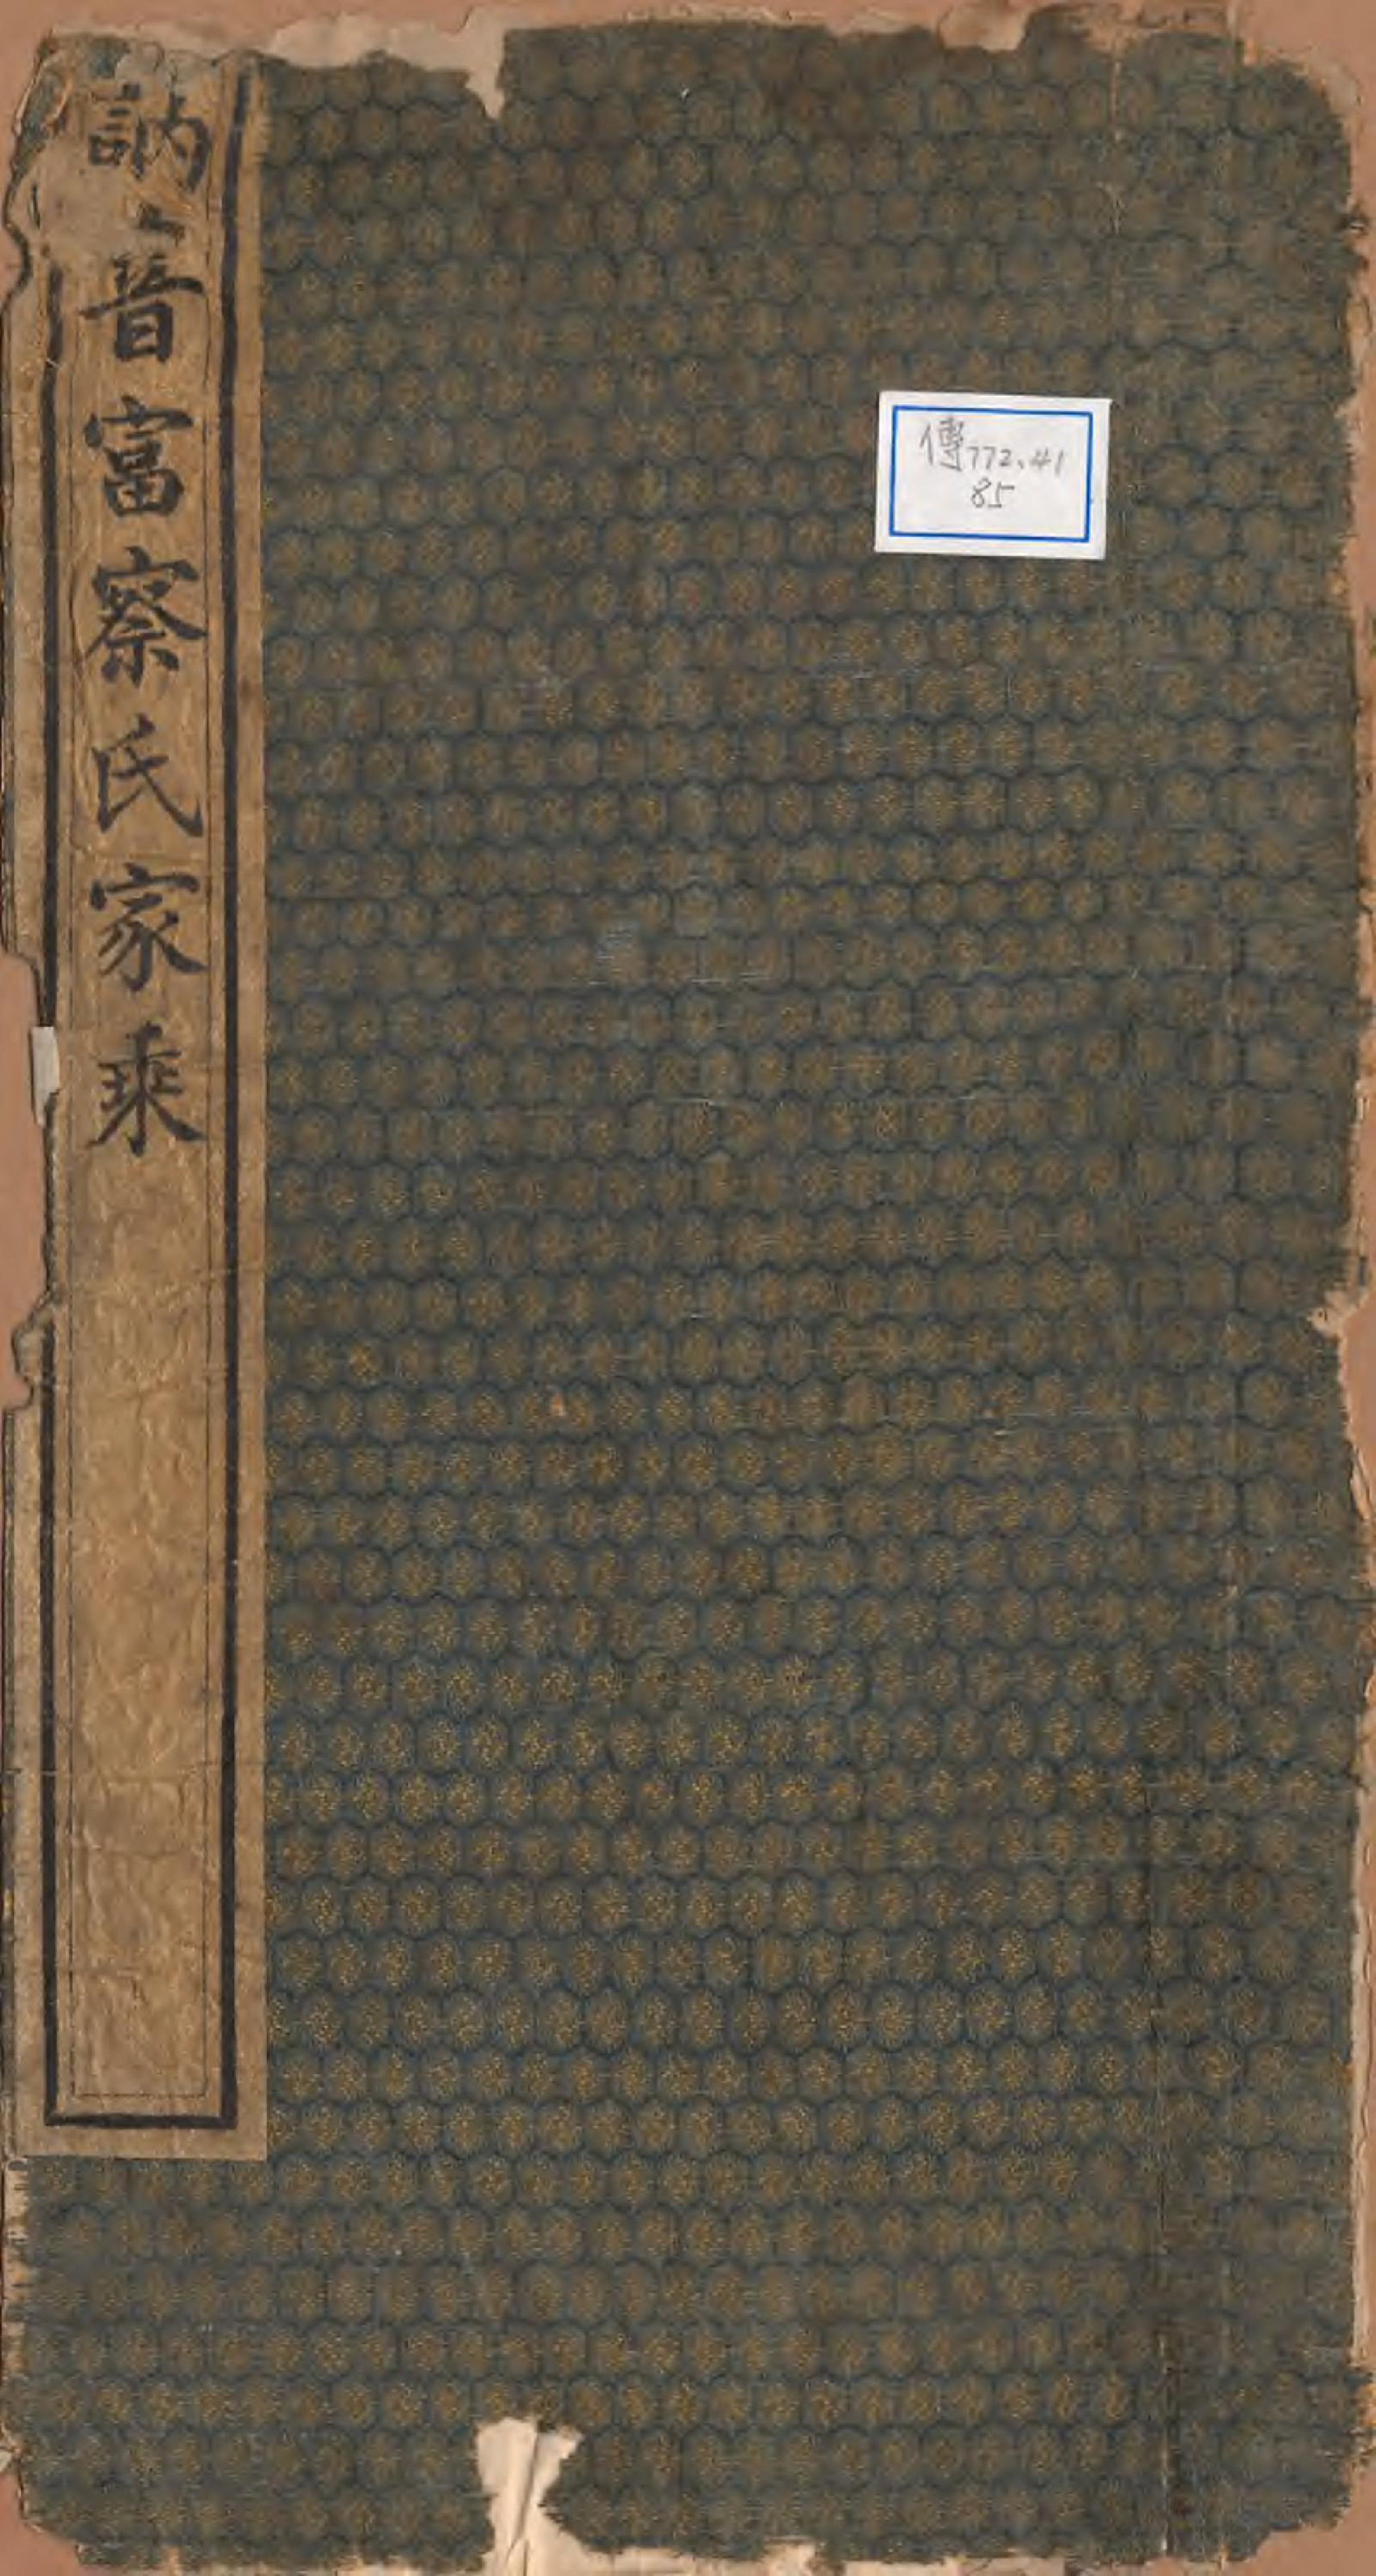 訥音富察氏家乘
傳772.41
85